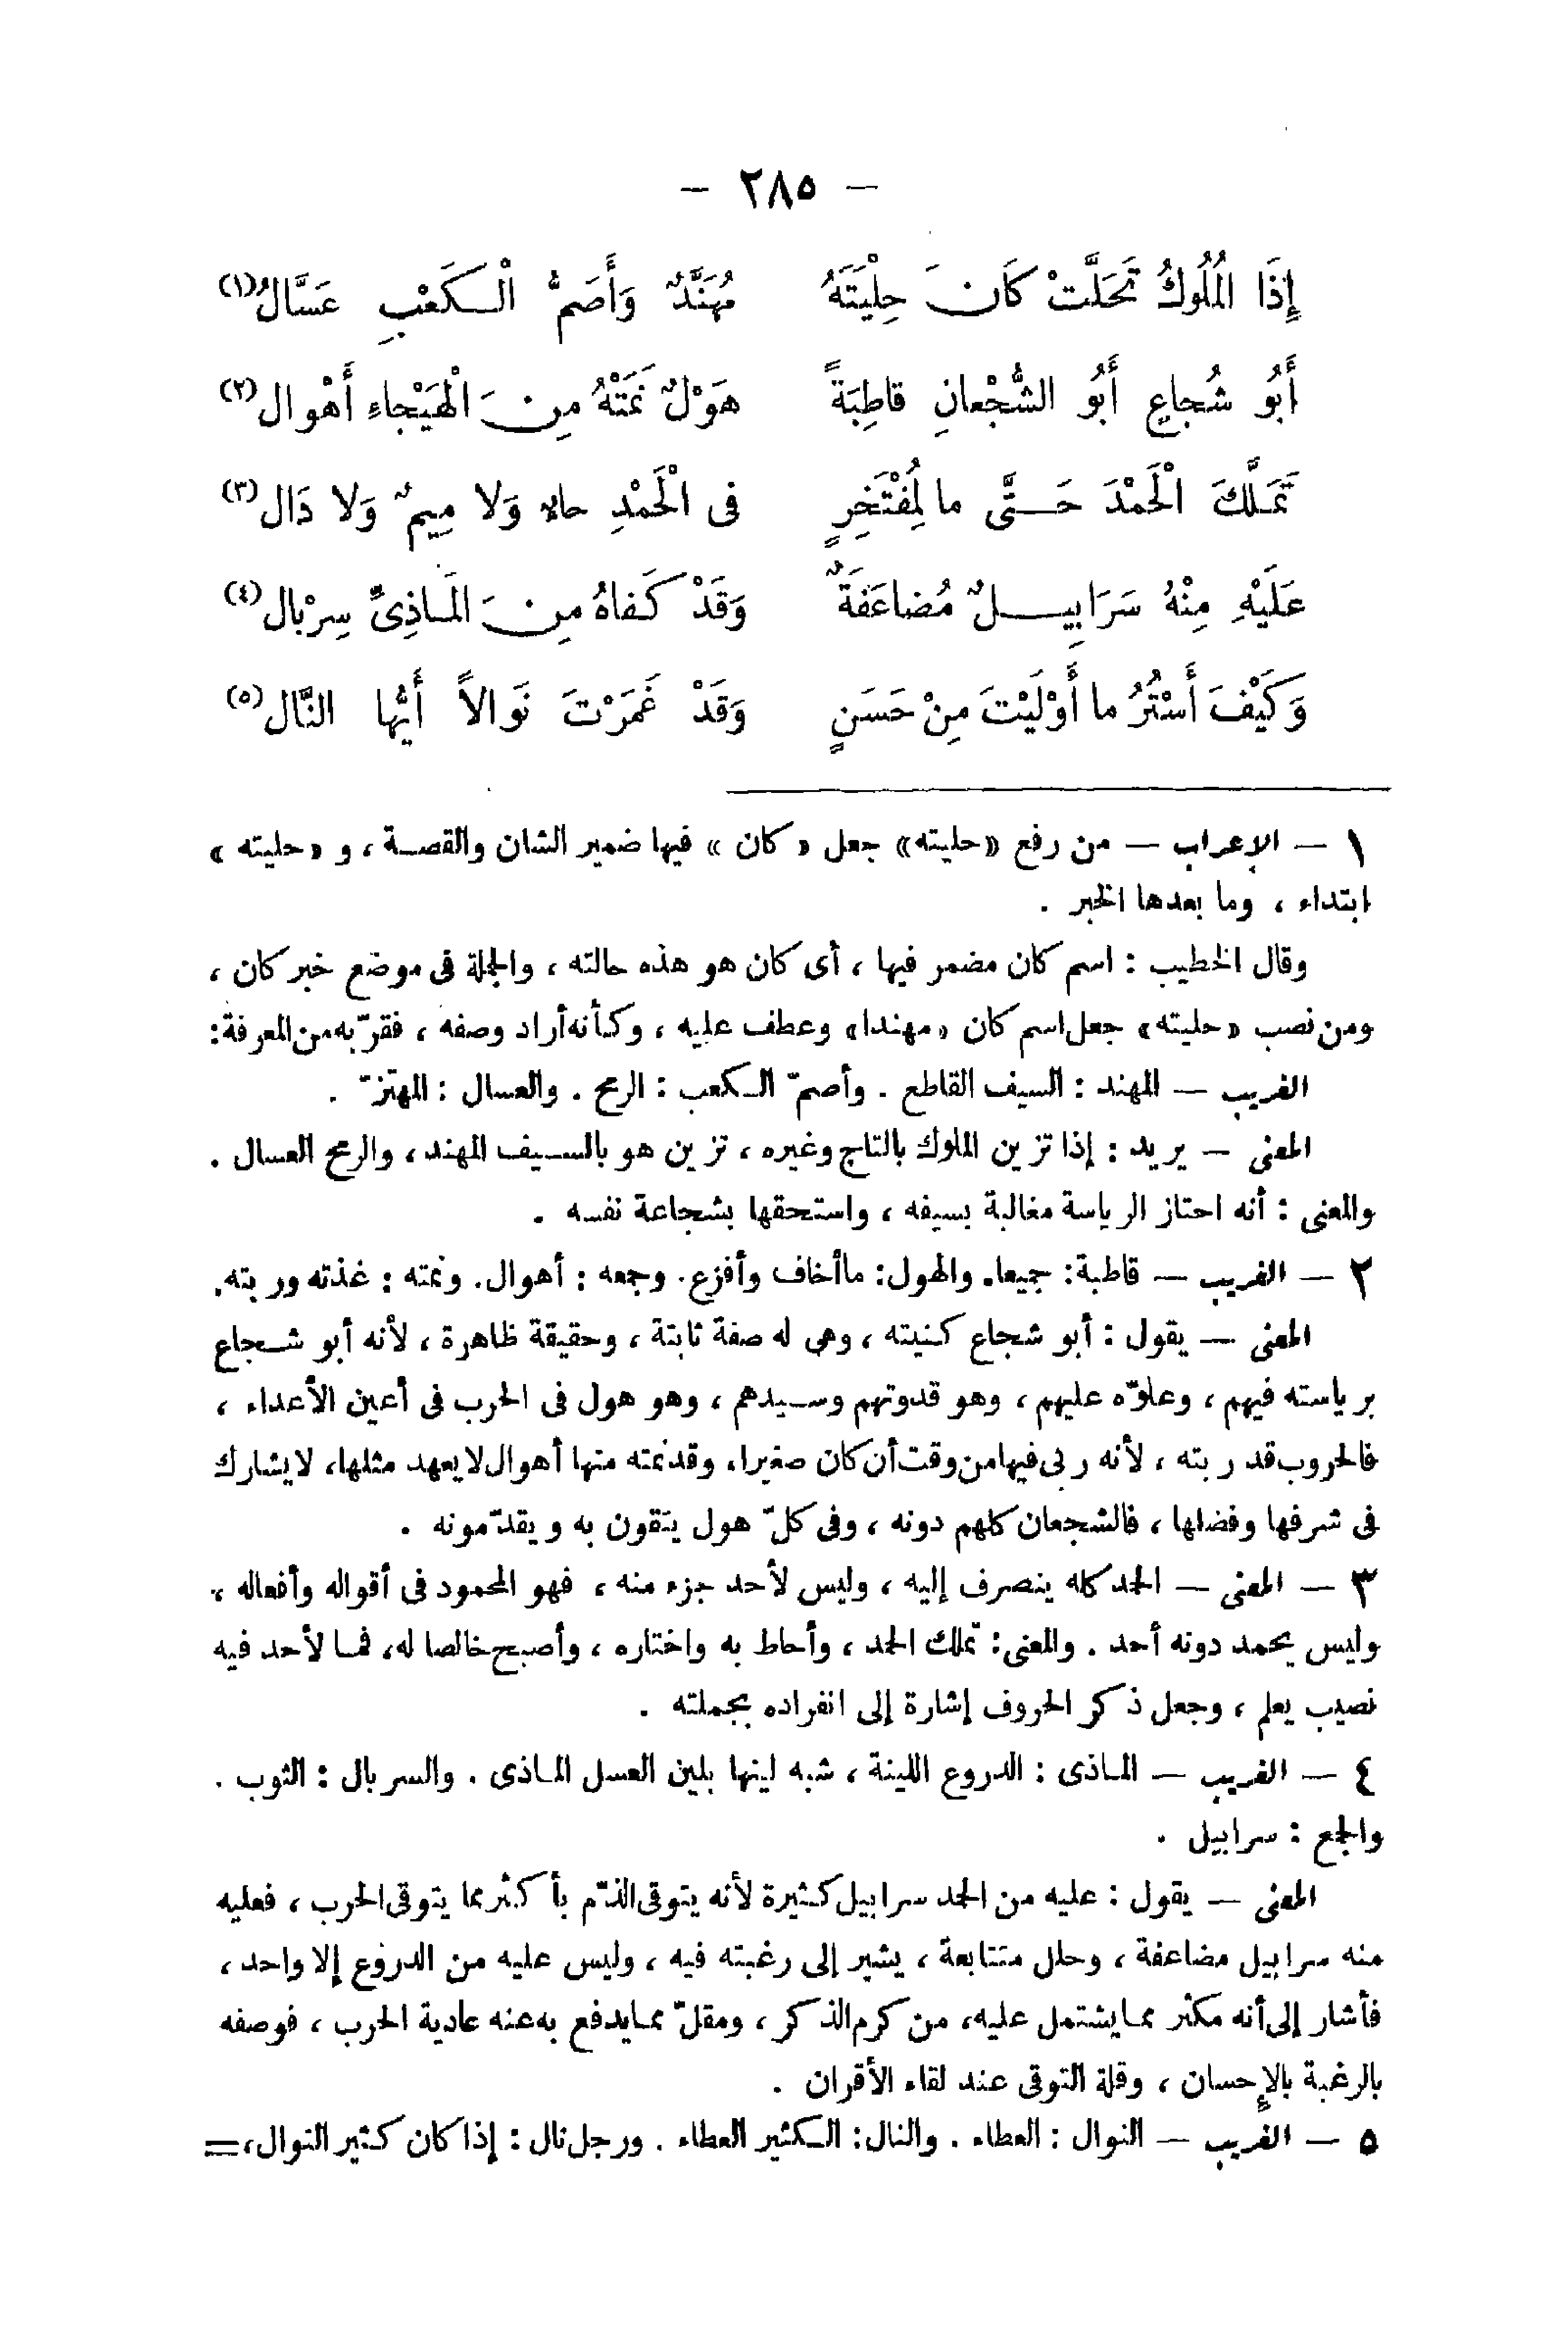 — ٢٨٥ —
إِذَا الْمُلُوكُ تَحَلَّتْ كَانَ حِلْيَتَهُ مُهَنَّدٌ وَأَصَمُّ الْكَعْبِ عَسَّالُ(١)
أَبُو شُجاعٍ أَبُو الشُّجْعانِ قاطِبَةً هَوْلٌ نَمَتْهُ مِنَ الْهَيْجاءِ أَهْوال(٢)
تَمَلَّكَ الْحَمْدَ حَتَّى ما لِمُفْتَخِرٍ فى الْحَمْدِ حاء وَلا مِيمٌ وَلا دَال(٣)
عَلَيْهِ مِنْهُ سَرَابِيلٌ مُضاعَفَةٌ وَقَدْ كَفاهُ مِنَ المَاذِىِّ سِرْبال(٤)
وَكَيْفَ أَسْتُرُ ما أَوْلَيْتَ مِنْ حَسَنٍ وَقَدْ غَمَرْتَ نَوَالاً أَيُّها النَّال(٥)
١ — الإعراب — من رفع «حليته» جعل «كان» فيها ضمير الشان والقصة ، و «حليته»
ابتداء ، وما بعدها الخبر .
وقال الخطيب : اسم كان مضمر فيها ، أى كان هو هذه حالته ، والجملة فى موضع خبر كان ،
ومن نصب «حليته» جعل اسم كان «مهندا» وعطف عليه ، وكأنه أراد وصفه ، فقرّ به من المعرفة :
الغريب — المهند : السيف القاطع . وأصمّ الكعب : الرمح . والعسال : المهتزّ .
المعنى — يريد : إذا تزين الملوك بالتاج وغيره ، تزين هو بالسيف المهند ، والرمح العسال .
والمعنى : أنه احتاز الرياسة مغالبة بسيفه ، واستحقها بشجاعة نفسه .
٢ — الغريب — قاطبة : جميعا . والهول : ما أخاف وأفزع . وجمعه : أهوال . ونمته : غذته وربته .
المعنى — يقول : أبو شجاع كنيته ، وهى له صفة ثابتة ، وحقيقة ظاهرة ، لأنه أبو شجاع
برياسته فيهم ، وعلوّه عليهم ، وهو قدوتهم وسيدهم ، وهو هول فى الحرب فى أعين الأعداء ،
فالحروب قد ربته ، لأنه ربى فيها من وقت أن كان صغيرا ، وقد نمته منها أهوال لا يعهد مثلها ، لا يشارك
فى شرفها وفضلها ، فالشجعان كلهم دونه ، وفى كلّ هول يتقون به ويقدّمونه .
٣ — المعنى — الحمد كله ينصرف إليه ، وليس لأحد جزء منه ، فهو المحمود فى أقواله وأفعاله ،
وليس يحمد دونه أحد . والمعنى : تملك الحمد ، وأحاط به واختاره ، وأصبح خالصا له ، فما لأحد فيه
نصيب يعلم ، وجعل ذكر الحروف إشارة إلى انفراده بجملته .
٤ — الغريب — الماذى : الدروع اللينة ، شبه لينها بلين العسل الماذى . والسربال : الثوب .
والجمع : سرابيل .
المعنى — يقول : عليه من الحمد سرابيل كثيرة لأنه يتوقى الذمّ بأكثر مما يتوقى الحرب ، فعليه
منه سرابيل مضاعفة ، وحلل متتابعة ، يشير إلى رغبته فيه ، وليس عليه من الدروع إلا واحد ،
فأشار إلى أنه مكثر مما يشتمل عليه ، من كرم الذكر ، ومقلّ مما يدفع به عنه عادية الحرب ، فوصفه
بالرغبة بالإحسان ، وقلة التوقى عند لقاء الأقران .
٥ — الغريب — النوال : العطاء . والنال : الكثير العطاء . ورجل نال : إذا كان كثير النوال ، =